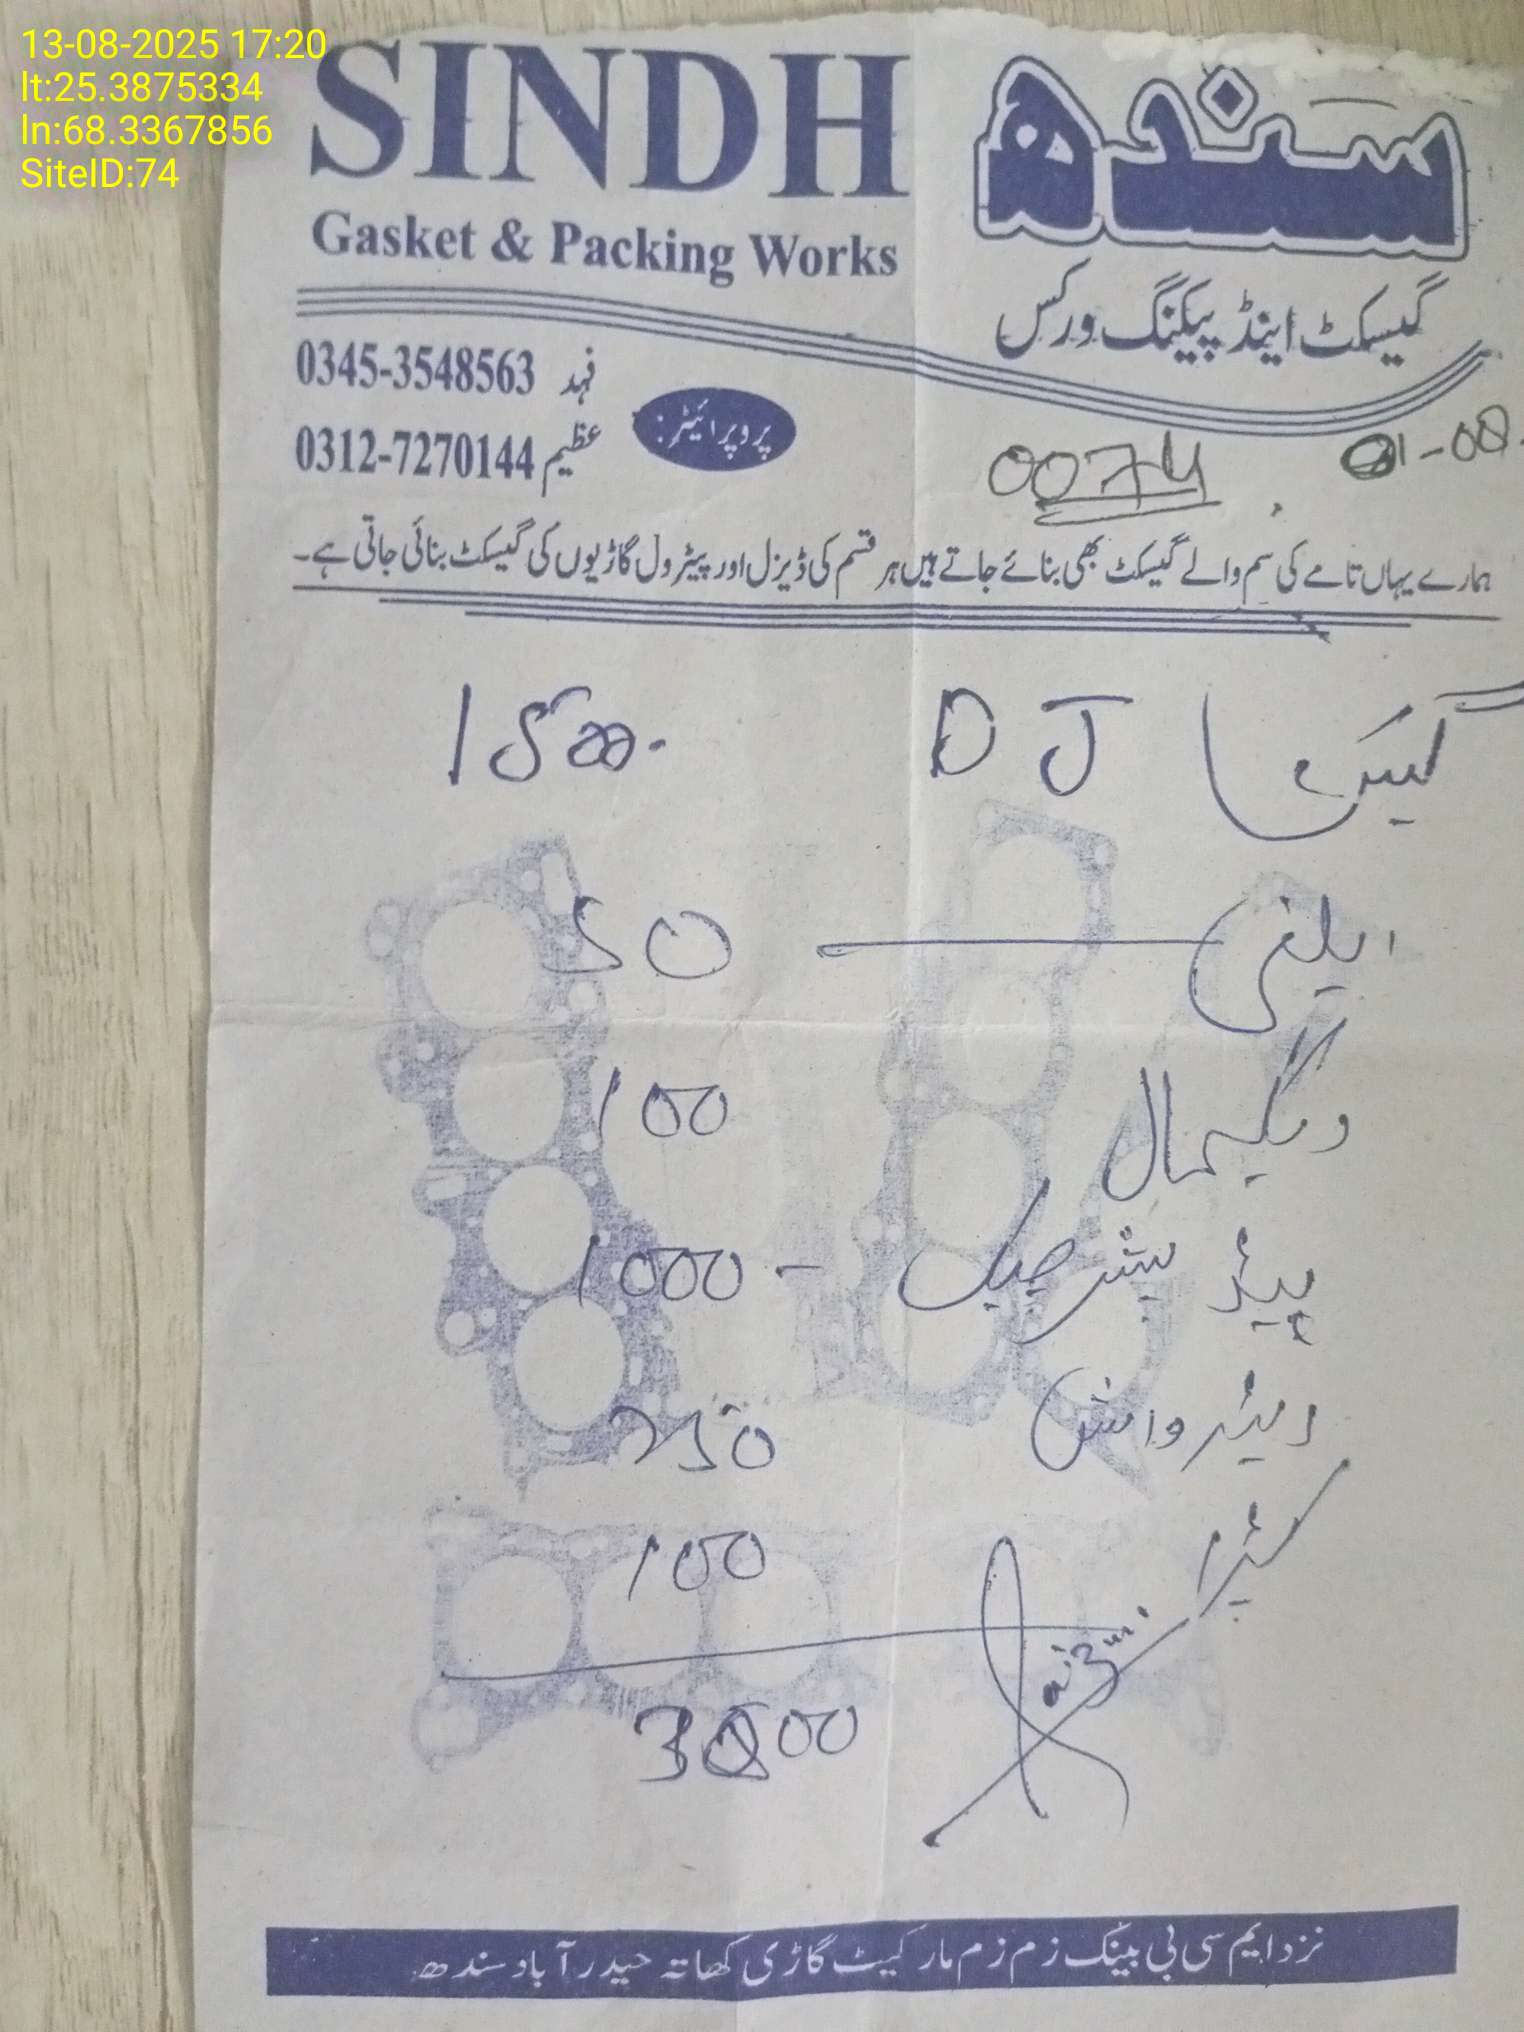 13-08-2025 17:20
lt:25.3875334
ln:68.3367856
SiteID:74
SINDH سندھ
Gasket & Packing Works
گیسکٹ اینڈ پیکنگ ورکس
0345-3548563 فہد
0312-7270144 عظیم
پروپرائیٹر:
0074
ہمارے یہاں تامے کی سم والے گیسکٹ بھی بنائے جاتے ہیں ہر قسم کی ڈیزل اور پیٹرول گاڑیوں کی گیسکٹ بنائی جاتی ہے۔
DJ 1500
ایلفی 50
ریگمال 100
پیڈ 1000
واش 250
100
3000
نزد ایم سی بی بینک زم زم مارکیٹ گاڑی کھاتہ حیدرآباد سندھ